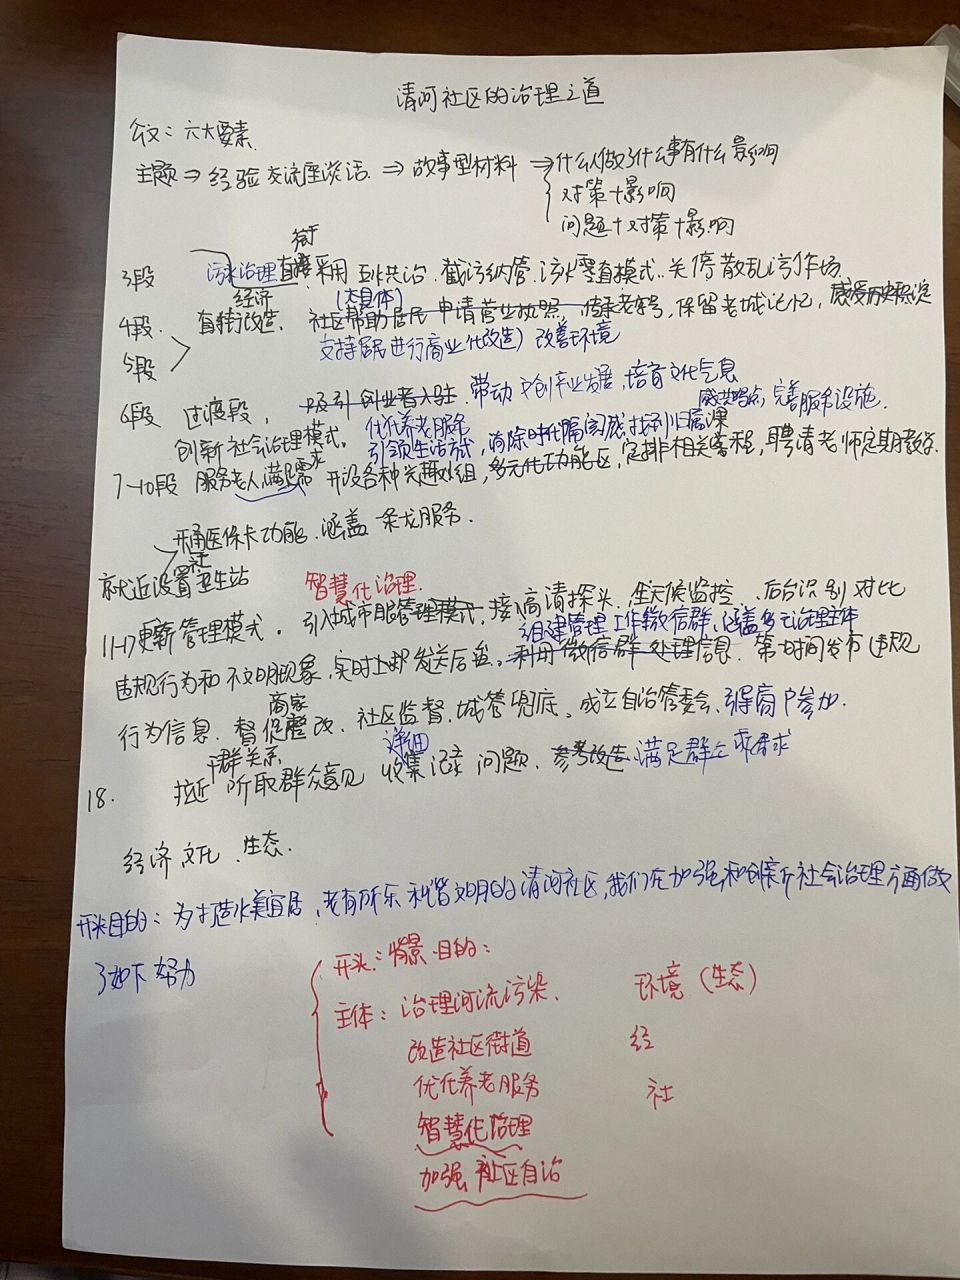 清河社区的治理之道
公文：六大要素
主题⇒经验交流座谈话⇒故事型材料⇒什么人做了什么事有什么影响
对策+影响
问题+对策+影响
街
3段 污水治理 采用 共治、截污纳管、污水零直模式、关停散乱污作坊
经济 (大具体) 感受历史
4段. 改造、社区帮助居民申请营业执照，传承老字号，保留老城记忆，
5段 支持居民进行商业化改造) 改善环境
6段 过渡段， 吸引创业者入驻 带动文创产业发展，培育文化气息
完善服务设施.
创新社会治理模式。 优化养老服务
引领生活方式，消除时代隔阂感 找到归属
7-10段 服务老人满足需求 开设各种兴趣小组，多元化功能区，安排相关课程，聘请老师定期教学.
开通医保卡功能、涵盖一条龙服务.
就近设置卫生站 智慧化治理.
11-17更新管理模式。引入城市 管理模式，接入高清探头、全天候监控、后台识别对比
组建管理工作微信群，涵盖多元治理主体
违规行为和不文明现象，实时 后台。利用微信群处理信息. 第一时间发布违规
商家
行为信息、督促整改、社区监督、城管兜底、成立自治管委会、引导商户参加.
干群关系 详细
18. 拉近 听取群众意见 收集记录问题、参考改造 满足群众需求
经济 文化、生态.
开头目的：为打造水美宜居、老有所乐和谐 的清河社区，我们在加强和创新社会治理方面做
了如下努力
开头：背景·目的：
主体：治理河流污染、 环境（生态）
改造社区街道 经
优化养老服务 社
智慧化治理
加强社区自治